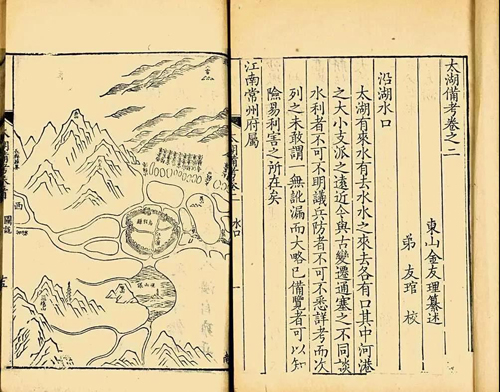 太湖備考卷之二
東山金友理纂述
弟 友琯 校
沿湖水口
太湖有來水有去水水之來去各有口其中河港
之大小支派之遠近今與古變遷通塞之不同談
水利者不可不明議兵防者不可不悉詳考而次
列之未敢謂一無訛漏而大略已備覽者可以知
險易利害之所在矣
江南常州府屬
水口
一
圖說
西